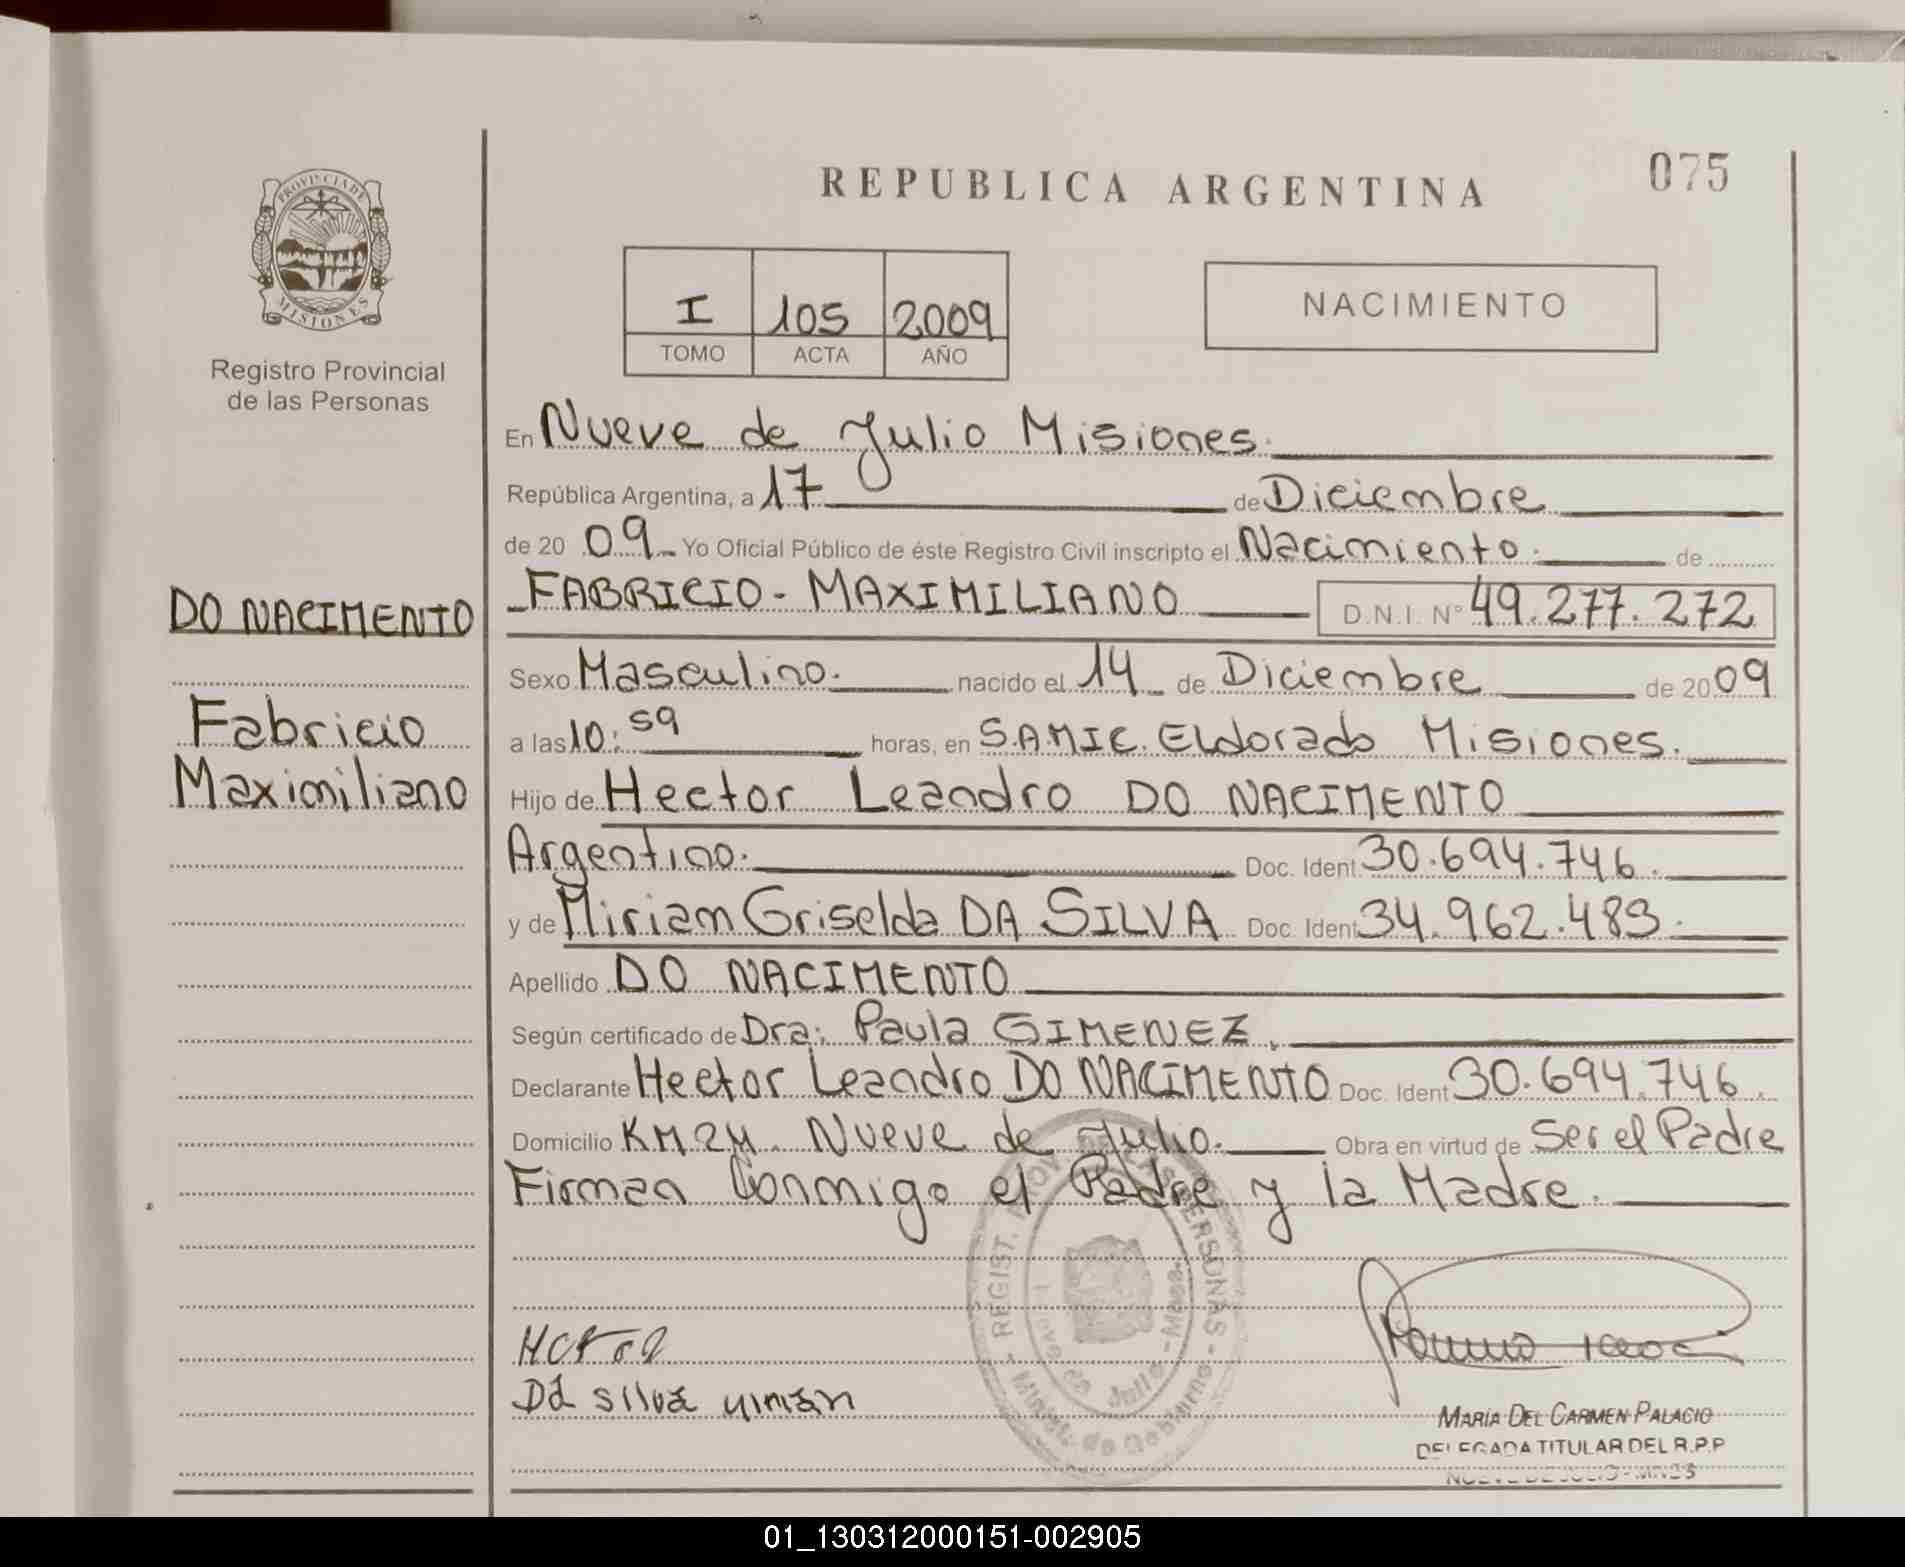 PROVINCIA DE
MISIONES
Registro Provincial
de las Personas
DO NACIMENTO
Fabricio
Maximiliano
REPUBLICA ARGENTINA
075
I 105 2009
TOMO ACTA AÑO
NACIMIENTO
En Nueve de Julio Misiones.
República Argentina, a 17 de Diciembre
de 20 09 Yo Oficial Público de éste Registro Civil inscripto el Nacimiento. de
FABRICIO - MAXIMILIANO D.N.I. N° 49.277.272
Sexo Masculino. nacido el 14 de Diciembre de 20 09
a las 10:59 horas, en S.A.M.I.C. Eldorado Misiones.
Hijo de Hector Leandro DO NACIMENTO
Argentino. Doc. Ident 30.694.746.
y de Miriam Griselda DA SILVA Doc. Ident 34.962.489.
Apellido DO NACIMENTO
Según certificado de Dra: Paula GIMENEZ.
Declarante Hector Leandro DO NACIMENTO Doc. Ident 30.694.746.
Domicilio KM Nueve de Julio. Obra en virtud de Ser el Padre
Firman Conmigo el Padre y la Madre.
REGIST. PROV. DE LAS PERSONAS
Minist. de Gobierno
Nueve de Julio - Mnes.
Da silva
MARIA DEL CARMEN PALACIO
DELEGADA TITULAR DEL R.P.P
NUEVE DE JULIO - MNES
01_130312000151-002905